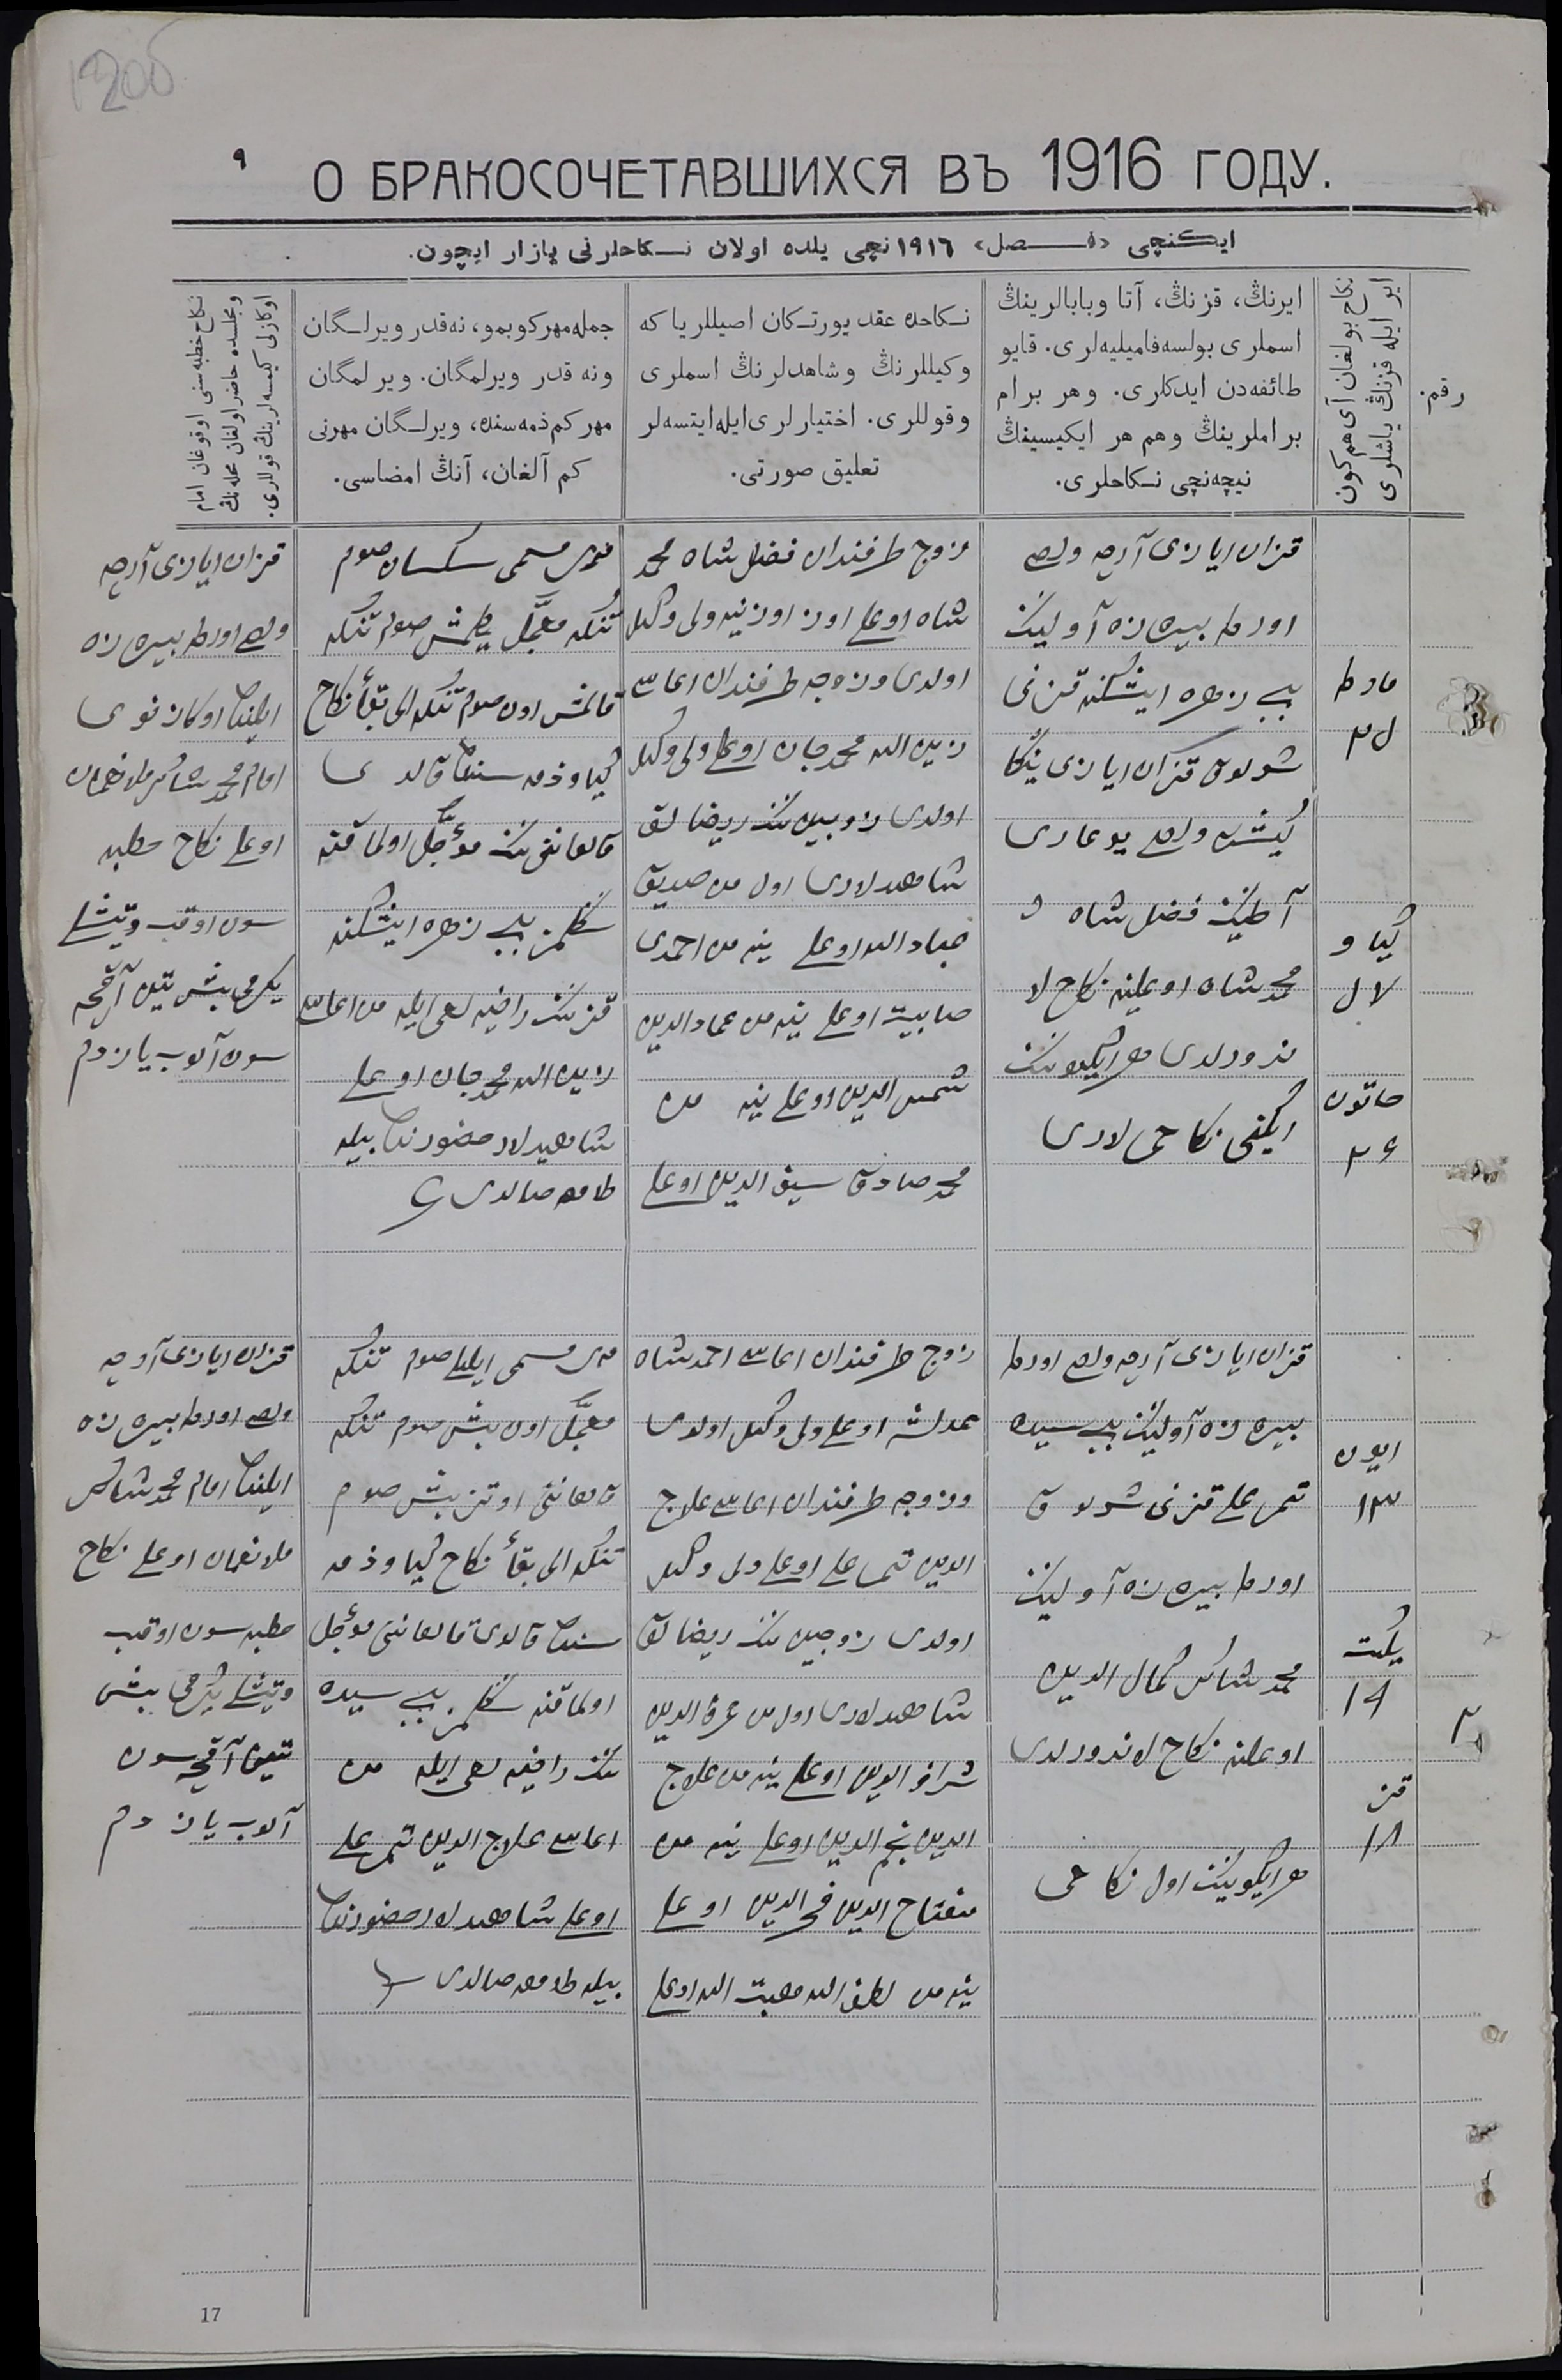 1206
٩
О БРАКОСОЧЕТАВШИХСЯ ВЪ 1916 ГОДУ.
ایكنچی «فصل» ١٩١٦ نچی یلده اولان نكاحلرنی یازار ایچون.
رقم.
ایر ایله قزنڭ یاشلری
نكاح بولغان آی هم كون
ایرنڭ، قزنڭ، آتا وبابالرینڭ
اسملری بولسه فامیلیه‌لری. قایو
طائفه‌دن ایدكلری. وهر برام
براملرینڭ وهم هر ایكیسینڭ
نیچه‌نچی نكاحلری.
نكاحده عقد یورتكان اصیللر یا كه
وكیللرنڭ وشاهدلرنڭ اسملری
وقوللری. اختیارلری ایله ایتسه‌لر
تعلیق صورتی.
جمله مهر كوبمو، نه‌قدر ویرلگان
ونه قدر ویرلمگان. ویرلمگان
مهر كم ذمه‌سنده، ویرلگان مهرنی
كم آلغان، آنڭ امضاسی.
نكاح خطبه‌سنی اوقوغان امام
ومجلسده حاضر اولغان محله‌نڭ
اوكازنی كیمسه‌لرینڭ قوللری.
مارط
كیاو
خاتون
قزان ایازی آریه ولصی
اورطه بیره‌زه آولینڭ
بیبی زهره ایشكنه قزنی
شولوق قزان ایازی یڭا
كیشیت ولصی یوغاری
آطینڭ فضل شاه
محمد شاه اوغلینه نكاح لا
ندورلدی هر ایكیوننڭ
ایكنجی نكاحی لاری
زوج طرفندان فضل شاه محمد
شاه اوغلی اوز اوزینه ولی وكیل
اولدی وزوجه طرفندان اغاسی
زین الله محمدجان اوغلی ولی وكیل
اولدی زوجین ننڭ ریضالق
شاهدلاری اول من صدیق
عباد الله اوغلی ینه من احمدی
صابیت اوغلی ینه من عماد الدین
شمس الدین اوغلی ینه من
محمد صادق سیف الدین اوغلی
مهری مسمی سكسان صوم
تنكه معجّل یطمش صوم تنكه
قالمش اون صوم تنكه الی بقأ نكاح
كیاو ذمه سنده قالدی
قالغاننی ننڭ مؤجّل اولماقنه
گلمز بیبی زهره ایشكنه
قزننڭ راضیه لغی ایله من اغاسی
زین الله محمدجان اوغلی
شاهیدلار حضورنده بیله
طامغه صالدی
قزان ایازی آریه
ولصی اورطه بیره زه
ایلینده اوكازنوی
امام محمد شاكر ملا نعمان
اوغلی نكاح خطبه
سون اوقب ویتشلی
یكرمی بیش تین آقچه
سون آلوب یازدم
٢
ایون
١٣
یكت
١٩
قز
١٨
قزان ایازی آریه ولصی اورطه
بیره زه آولینڭ بیبی سیده
تمر علی قزنی شولوق
اورطه بیره زه آولینڭ
محمد شاكر كمال الدین
اوغلنه نكاح لاندورلدی
هر ایكویننڭ اول نكاحی
زوج طرفندان اغاسی احمد شاه
اوغلی ولی وكیل اولدی
وزوجه طرفندان اغاسی علاج
الدین تمر علی اوغلی ولی وكیل
اولدی زوجین ننڭ ریضالق
شاهدلاری اول من عرف الدین
شراف الدین اوغلی ینه من علاج
الدین نجم الدین اوغلی ینه من
مفتاح الدین فخر الدین اوغلی
ینه من لطف الله هبت الله اوغلی
مهری مسمی ایللی صوم تنكه
معجّل اون بیش صوم تنكه
قالغاننی اوتز بیش صوم
تنكه الی بقأ نكاح كیاو ذمه
سنده قالدی قالغاننی مؤجل
اولماقنه گلمز بیبی سیده
ننڭ راضیه لغی ایله من
اغاسی علاج الدین تمر علی
اوغلی شاهدلار حضورنده
بیله طامغه صالدی
قزان ایازی آریه
ولصی اورطه بیره زه
ایلینده امام محمد شاكر
ملا نعمان اوغلی نكاح
خطبه سون اوقب
ویتشلی یكرمی بیش
تین آقچه سون
آلوب یازدم
17